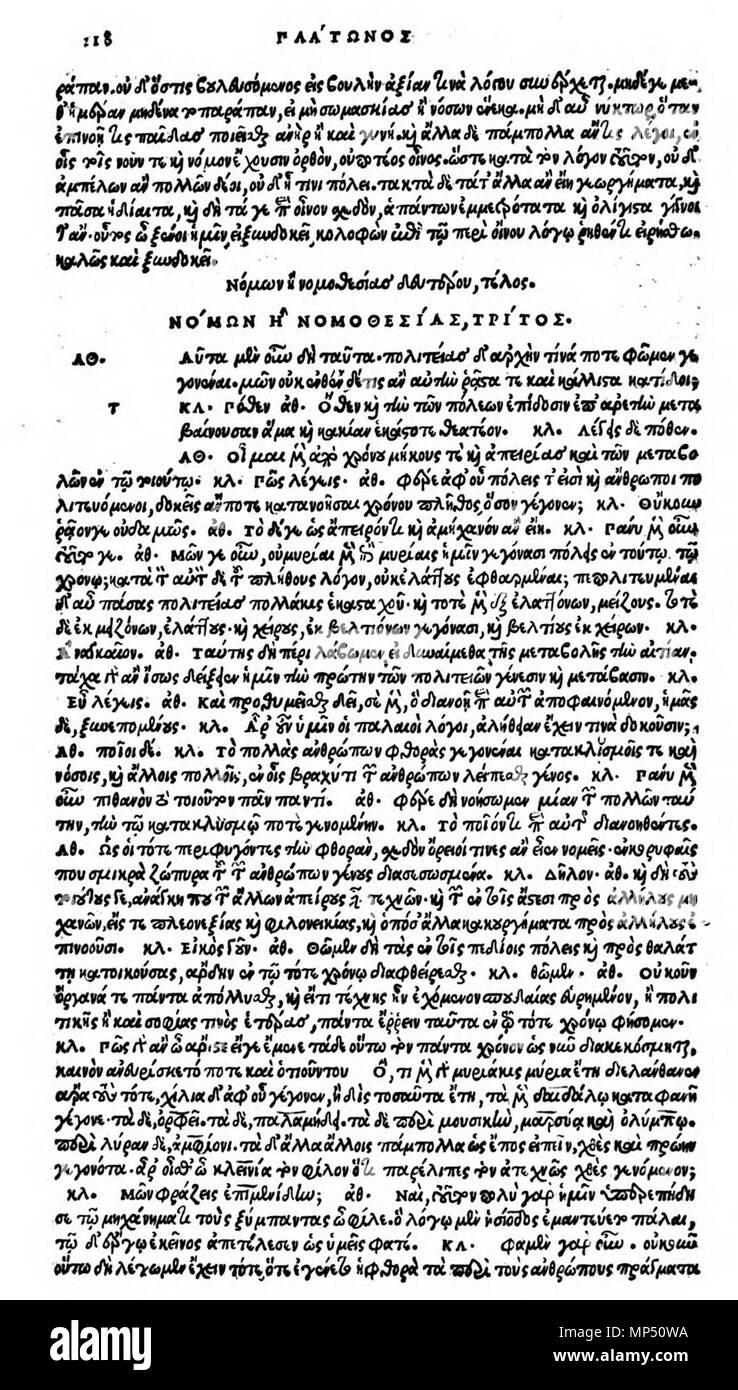 218 ΠΛΑ΄ΤΩΝΟΣ
ράπαν. οὐδ' ὅστις βουλευσόμενος εἰς βουλὴν ἀξίαν τινὰ λόγου συνέρχεται. μηδέγε με
θ' ἡμέραν μηδένα τοπαράπαν, εἰ μὴ σωμασκίας ἢ νόσων ἕνεκα. μὴ δ' αὖ νύκτωρ ὅταν
ἐπινοῇ τις παῖδας ποιεῖσθαι ἀνὴρ ἢ καὶ γυνή. καὶ ἄλλα δὲ πάμπολλα ἄν τις λέγοι, ἐν
οἷς τοῖς νοῦν τε καὶ νόμον ἔχουσιν ὀρθὸν, οὐ ποτέος οἶνος. ὥστε κατὰ τὸν λόγον τοῦτον, οὐδ'
ἀμπέλων ἂν πολλῶν δέοι, οὐδ' ᾗ τινι πόλει. τακτὰ δὲ τά τ' ἄλλα ἂν εἴη γεωργήματα, καὶ
πᾶσα ἡ δίαιτα, καὶ δὴ τά γε περὶ οἶνον σχεδὸν, ἁπάντων ἐμμετρότατα καὶ ὀλίγιστα γίγνοι
τ' ἄν. οὗτος ὦ ξένοι ἡμῖν, εἰ ξυνδοκεῖ, κολοφὼν ἐπὶ τῷ περὶ οἴνου λόγῳ ῥηθέντι εἰρήσθω.
καλῶς καὶ ξυνδοκεῖ.
Νόμων ἢ νομοθεσίας δευτέρου, τέλος.
ΝΟ΄ΜΩΝ Η῍ ΝΟΜΟΘΕΣΙ΄ΑΣ, ΤΡΙ΄ΤΟΣ.
ΑΘ. Αὗτα μὲν οὖν δὴ ταῦτα. πολιτείας δ' ἀρχὴν τίνά ποτε φῶμεν γε
γονέναι. μῶν οὐκ ἐνθένδε τις ἂν αὐτὴν ῥᾷστα τε καὶ κάλλιστα κατίδοι;
τ ΚΛ. Πόθεν ΑΘ. Ὅθεν καὶ τὴν τῶν πόλεων ἐπίδοσιν ἐπ' ἀρετὴν μετα
βαίνουσαν ἅμα καὶ κακίαν ἑκάστοτε θεατέον. ΚΛ. Λέγεις δὲ πόθεν.
ΑΘ. Οἶμαι μὲν ἀπὸ χρόνου μήκους τε καὶ ἀπειρίας καὶ τῶν μεταβο
λῶν ἐν τῷ τοιούτῳ. ΚΛ. Πῶς λέγεις. ΑΘ. Φέρε ἀφ' οὗ πόλεις τ' εἰσὶ καὶ ἄνθρωποι πο
λιτευόμενοι, δοκεῖς ἄν ποτε κατανοῆσαι χρόνου πλῆθος, ὅσον γέγονεν; ΚΛ. Οὔκουν
ῥᾴδιόνγε οὐδαμῶς. ΑΘ. Τὸ δέγε ὡς ἄπειρόν τι καὶ ἀμήχανον ἂν εἴη. ΚΛ. Πάνυ μὲν οὖν
τοῦτό γε. ΑΘ. Μῶν γε οὖν, οὐ μυρίαι μὲν ἐπὶ μυρίαις ἡμῖν γεγόνασι πόλεις ἐν τούτῳ τῷ
χρόνῳ; κατὰ τὸν αὐτὸν δὲ τοῦ πλήθους λόγον, οὐκ ἐλάττους ἐφθαρμέναι; πεπολιτευμέναι
δ' αὖ πάσας πολιτείας πολλάκις ἑκασταχοῦ. καὶ τοτὲ μὲν ἐξ ἐλαττόνων, μείζους. τοτὲ
δὲ ἐκ μειζόνων, ἐλάττους. καὶ χείρους, ἐκ βελτιόνων γεγόνασι, καὶ βελτίους ἐκ χειρόνων. ΚΛ.
Ἀναγκαῖον. ΑΘ. Ταύτης δὴ πέρι λάβωμεν, εἰ δυναίμεθα τῆς μεταβολῆς τὴν αἰτίαν.
τάχα γὰρ ἂν ἴσως δείξειεν ἡμῖν τὴν πρώτην τῶν πολιτειῶν γένεσιν καὶ μετάβασιν. ΚΛ.
Εὖ λέγεις. ΑΘ. Καὶ προθυμεῖσθαι δεῖ, σὲ μὲν, ὃ διανοῇ περὶ αὐτῶν ἀποφαινόμενον, ἡμᾶς
δὲ, ξυνεπομένους. ΚΛ. Ἆρ' οὖν ὑμῖν οἱ παλαιοὶ λόγοι, ἀλήθειαν ἔχειν τινὰ δοκοῦσιν;
ΑΘ. ποῖοι δέ. ΚΛ. Τὸ πολλὰς ἀνθρώπων φθορὰς γεγονέναι κατακλυσμοῖς τε καὶ
νόσοις, καὶ ἄλλοις πολλοῖς, ἐν οἷς βραχύ τι τῶν ἀνθρώπων λείπεσθαι γένος. ΚΛ. Πάνυ μὲν
οὖν πιθανὸν τὸ τοιοῦτον πᾶν παντί. ΑΘ. Φέρε δὴ νοήσωμεν μίαν τῶν πολλῶν ταύ
την, τὴν τῷ κατακλυσμῷ ποτὲ γενομένην. ΚΛ. Τὸ ποῖόν τι περὶ αὐτῆς διανοηθέντες.
ΑΘ. Ὡς οἱ τότε περιφυγόντες τὴν φθορὰν, σχεδὸν ὄρειοί τινες ἂν εἶεν νομεῖς. ἐν κορυφαῖς
που σμικρὰ ζώπυρα τοῦ τῶν ἀνθρώπων γένους διασεσωσμένα. ΚΛ. Δῆλον. ΑΘ. καὶ δὴ τοὺς
τοιούτους γε, ἀνάγκη που τῶν ἄλλων ἀπείρους εἶναι τεχνῶν. καὶ τῶν ἐν τοῖς ἄστεσι πρὸς ἀλλήλους μη
χανῶν, εἴς τε πλεονεξίας καὶ φιλονεικίας, καὶ ὁπόσ' ἄλλα κακουργήματα πρὸς ἀλλήλους ἐ
πινοοῦσι. ΚΛ. Εἰκὸς γοῦν. ΑΘ. Θῶμεν δὴ τὰς ἐν τοῖς πεδίοις πόλεις καὶ πρὸς θαλάτ
τῃ κατοικούσας, ἄρδην ἐν τῷ τότε χρόνῳ διαφθείρεσθαι. ΚΛ. θῶμεν. ΑΘ. Οὐκοῦν
ὄργανά τε πάντα ἀπόλλυσθαι, καὶ εἴ τι τέχνης ἦν ἐχόμενον σπουδαίας εὑρημένον, ἢ πολι
τικῆς ἢ καὶ σοφίας τινὸς ἑτέρας, πάντα ἔρρειν ταῦτα ἐν τῷ τότε χρόνῳ φήσομεν.
ΚΛ. Πῶς γὰρ ἂν ὦ ἄριστε εἴγε ἔμενε τάδε οὕτω τὸν πάντα χρόνον ὡς νῦν διακεκόσμηται,
καινὸν ἀνευρίσκετό ποτε καὶ ὁτιοῦν τοῦ Ὅ, τι μὲν γὰρ μυριάκις μύρια ἔτη διελάνθανεν
ἄρα τοὺς τότε, χίλια δ' ἀφ' οὗ γέγονεν, ἢ δὶς τοσαῦτα ἔτη, τὰ μὲν δαιδάλῳ καταφανῆ
γέγονε. τὰ δὲ, ὀρφεῖ. τὰ δὲ, παλαμήδει. τὰ δὲ περὶ μουσικὴν, μαρσύᾳ καὶ ὀλύμπῳ.
περὶ λύραν δὲ, ἀμφίονι. τὰ δ' ἄλλα ἄλλοις πάμπολλα ὡς ἔπος εἰπεῖν, χθὲς καὶ πρώην
γεγονότα. ἆρ' οἶσθ' ὦ κλεινία τὸν φίλον ὅτι παρέλιπες τὸν ἀτεχνῶς χθὲς γενόμενον;
ΚΛ. Μῶν φράζεις ἐπιμενίδην; ΑΘ. Ναὶ, τοῦτον πολὺ γὰρ ἡμῖν ὑπερεπήδη
σε τῷ μηχανήματι τοὺς ξύμπαντας ὦ φίλε. ὃ λόγῳ μὲν ἡσίοδος ἐμαντεύετο πάλαι,
τῷ δ' ἔργῳ ἐκεῖνος ἀπετέλεσεν ὡς ὑμεῖς φατέ. ΚΛ. φαμὲν γὰρ οὖν. οὐκοῦν
οὕτω δὴ λέγωμεν ἔχειν τότε, ὅτε ἐγένετο ἡ φθορὰ τὰ περὶ τοὺς ἀνθρώπους πράγματα
alamy
Image ID: MP50WA
www.alamy.com